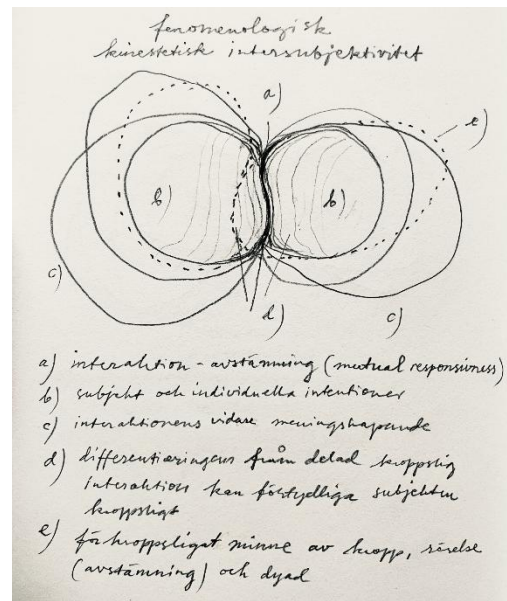 fenomenologisk
kinestetisk intersubjektivitet
a)
e)
b)
b)
c)
d)
c)
a) interaktion - avstämning (mutual responsiveness)
b) subjekt och individuella intentioner
c) interaktionens vidare meningsskapande
d) differentieringen från delad kroppslig
interaktion kan förtydliga subjekten
kroppsligt
e) förkroppsligat minne av kropp, rörelse
(avstämning) och dyad